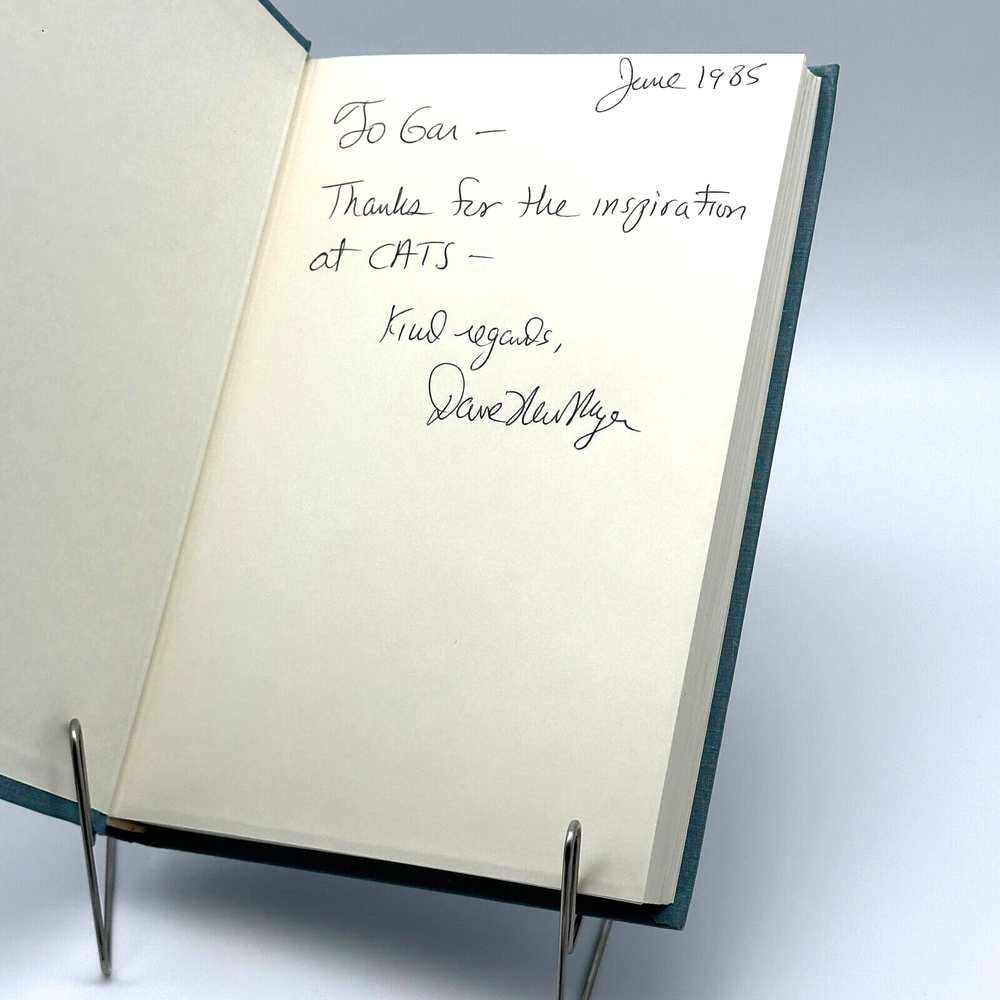 June 1985
To Gar —
Thanks for the inspiration
at CATS —
Kind regards,
Dave NewMyer